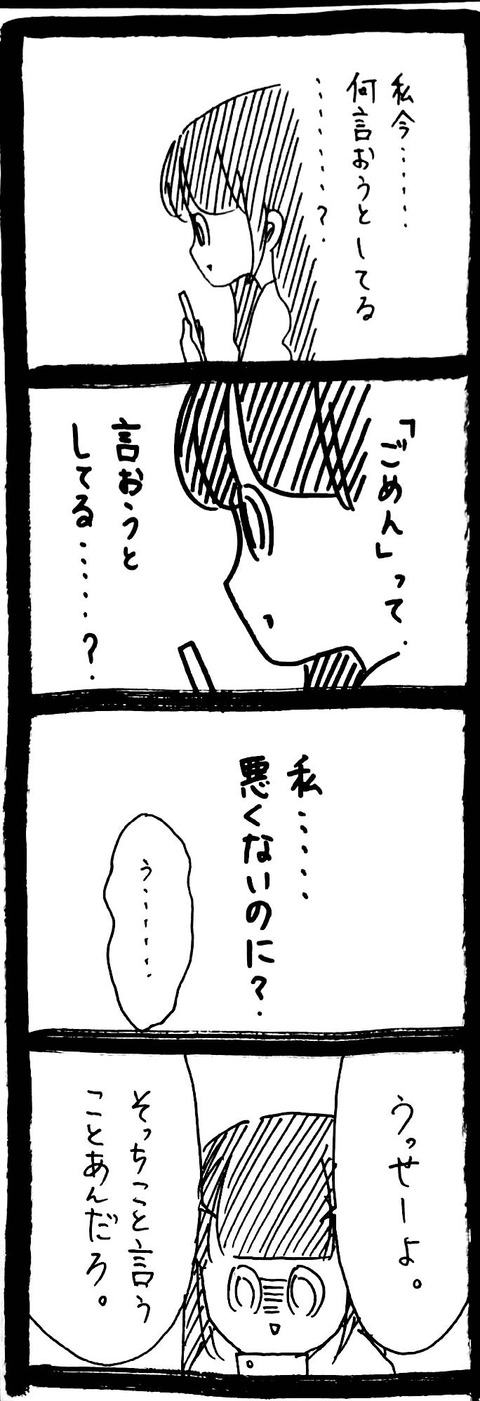 私今……
何言おうとしてる
………？
「ごめん」って
言おうと
してる……？
私……
悪くないのに？
う……
うっせーよ。
そっちこそ言う
ことあんだろ。